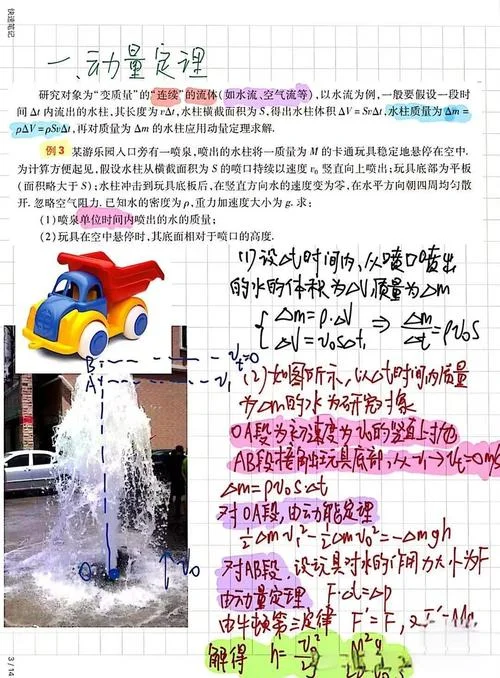 快速笔记
一、动量定理
研究对象为“变质量”的“连续”的流体(如水流、空气流等),以水流为例,一般要假设一段时
间 Δt 内流出的水柱,其长度为 vΔt,水柱横截面积为 S,得出水柱体积 ΔV=SvΔt,水柱质量为 Δm=
ρΔV=ρSvΔt,再对质量为 Δm 的水柱应用动量定理求解.
例 3 某游乐园入口旁有一喷泉,喷出的水柱将一质量为 M 的卡通玩具稳定地悬停在空中.
为计算方便起见,假设水柱从横截面积为 S 的喷口持续以速度 v₀ 竖直向上喷出;玩具底部为平板
(面积略大于 S);水柱冲击到玩具底板后,在竖直方向水的速度变为零,在水平方向朝四周均匀散
开.忽略空气阻力.已知水的密度为 ρ,重力加速度大小为 g.求:
(1)喷泉单位时间内喷出的水的质量;
(2)玩具在空中悬停时,其底面相对于喷口的高度.
(1) 设Δt时间内,从喷口喷出
的水的体积为ΔV,质量为Δm
{ Δm=ρ·ΔV
ΔV=v₀SΔt, ⇒ Δm/Δt=ρv₀S
B vt=0
A v₁
O v₀
(2)如图所示,以Δt时间内质量
为Δm的水为研究对象
OA段为初速度为v₀的竖直上抛
AB段接触玩具底部,从v₁→vt=0 m/s
Δm=ρv₀S·Δt
对OA段,由动能定理
½Δmv₁²-½Δmv₀²=-Δmgh
对AB段,设玩具对水的作用力大小为F
由动量定理, F·Δt=Δp
由牛顿第三定律 F'=F, 又F'=Mg,
解得 h=v₀²/2g-
3 / 14